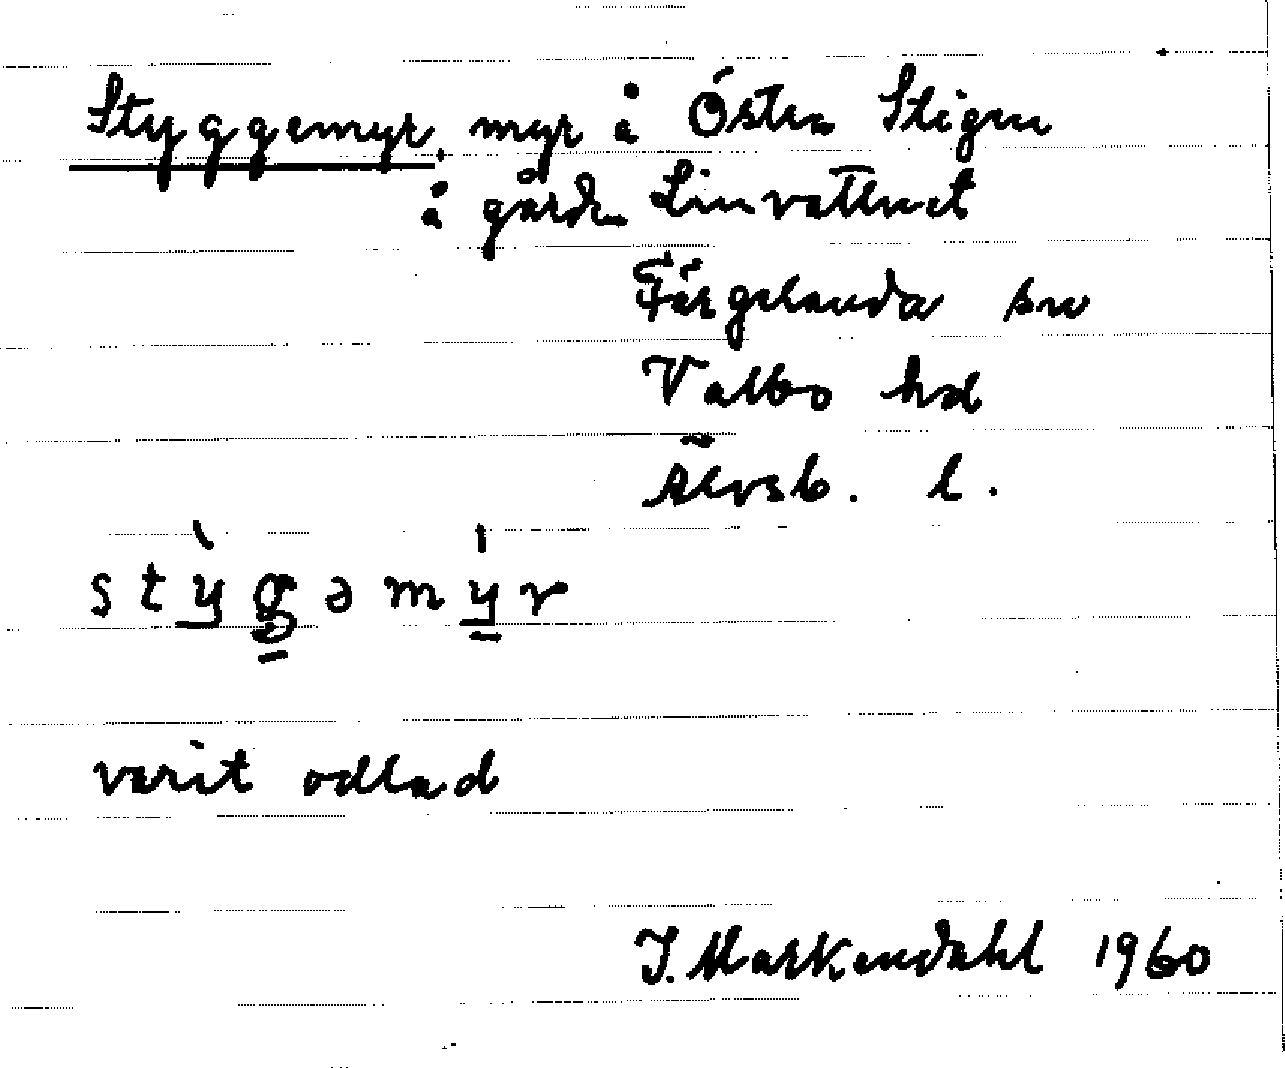 Styggemyr, myr å Östra Stigen
å gården Linvattnet
Färgelanda sn
Valbo hd
Älvsb. l.
stỳgəmýr
varit odlad
J. Markendahl 1960